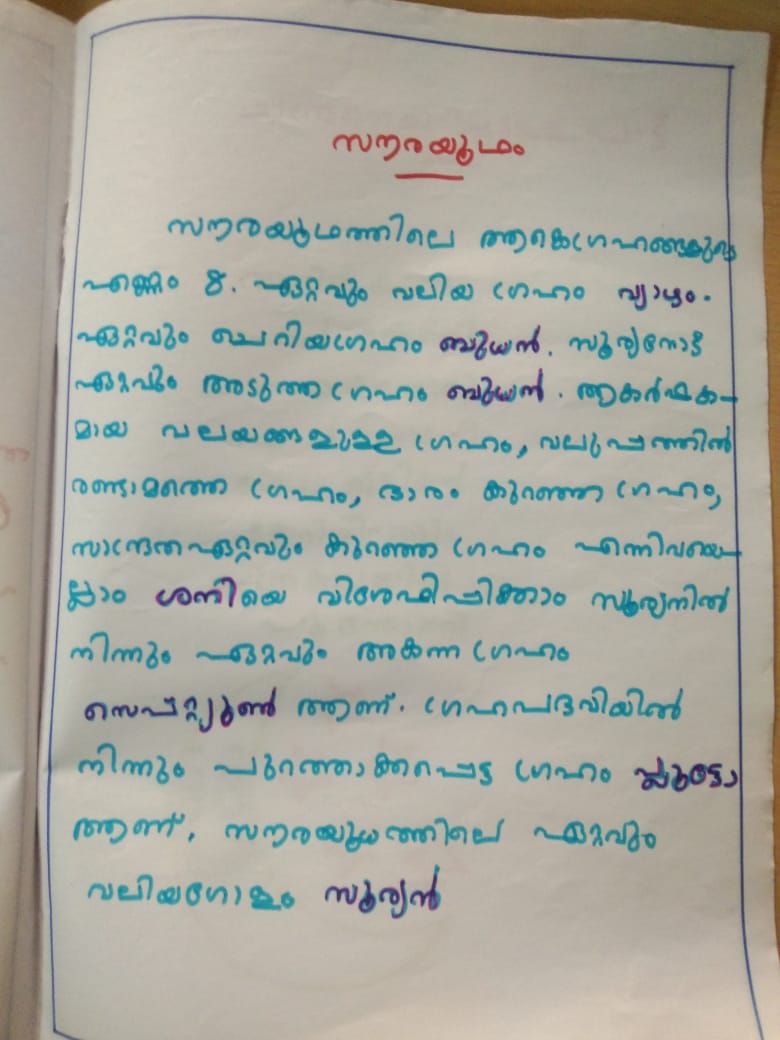 സൗരയൂഥം
സൗരയൂഥത്തിലെ ആകെഗ്രഹങ്ങളുടെ
എണ്ണം 8. ഏറ്റവും വലിയ ഗ്രഹം വ്യാഴം.
ഏറ്റവും ചെറിയഗ്രഹം ബുധൻ. സൂര്യനോട്
ഏറ്റവും അടുത്ത ഗ്രഹം ബുധൻ. ആകർഷക-
മായ വലയങ്ങളുള്ള ഗ്രഹം, വലുപ്പത്തിൽ
രണ്ടാമത്തെ ഗ്രഹം, ഭാരം കുറഞ്ഞ ഗ്രഹം,
സാന്ദ്രതഏറ്റവും കുറഞ്ഞ ഗ്രഹം എന്നിവയെ-
ല്ലാം ശനിയെ വിശേഷിപ്പിക്കാം സൂര്യനിൽ
നിന്നും ഏറ്റവും അകന്ന ഗ്രഹം
ആണ്. ഗ്രഹപദവിയിൽ
നിന്നും പുറത്താക്കപ്പെട്ട ഗ്രഹം പ്ലൂട്ടോ
ആണ്. സൗരയൂഥത്തിലെ ഏറ്റവും
വലിയഗോളം സൂര്യൻ